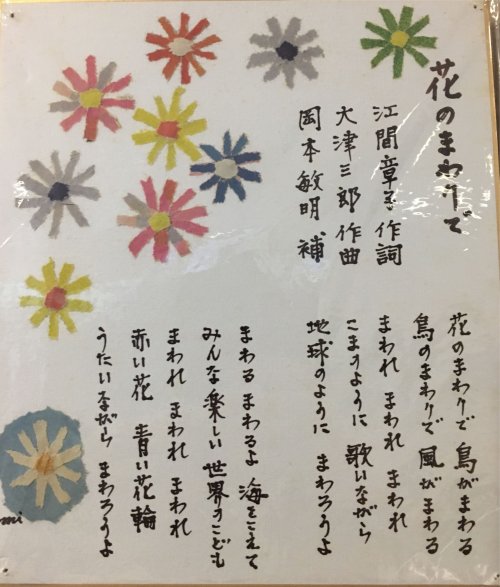 花のまわりで
江間章子 作詞
大津三郎 作曲
岡本敏明 補
花のまわりで 鳥がまわる
鳥のまわりで 風がまわる
まわれ まわれ まわれ
こまのように 歌いながら
地球のように まわろうよ
まわるまわるよ 海をこえて
みんな楽しい 世界のこども
まわれ まわれ まわれ
赤い花 青い花輪
うたいながら まわろうよ
mi